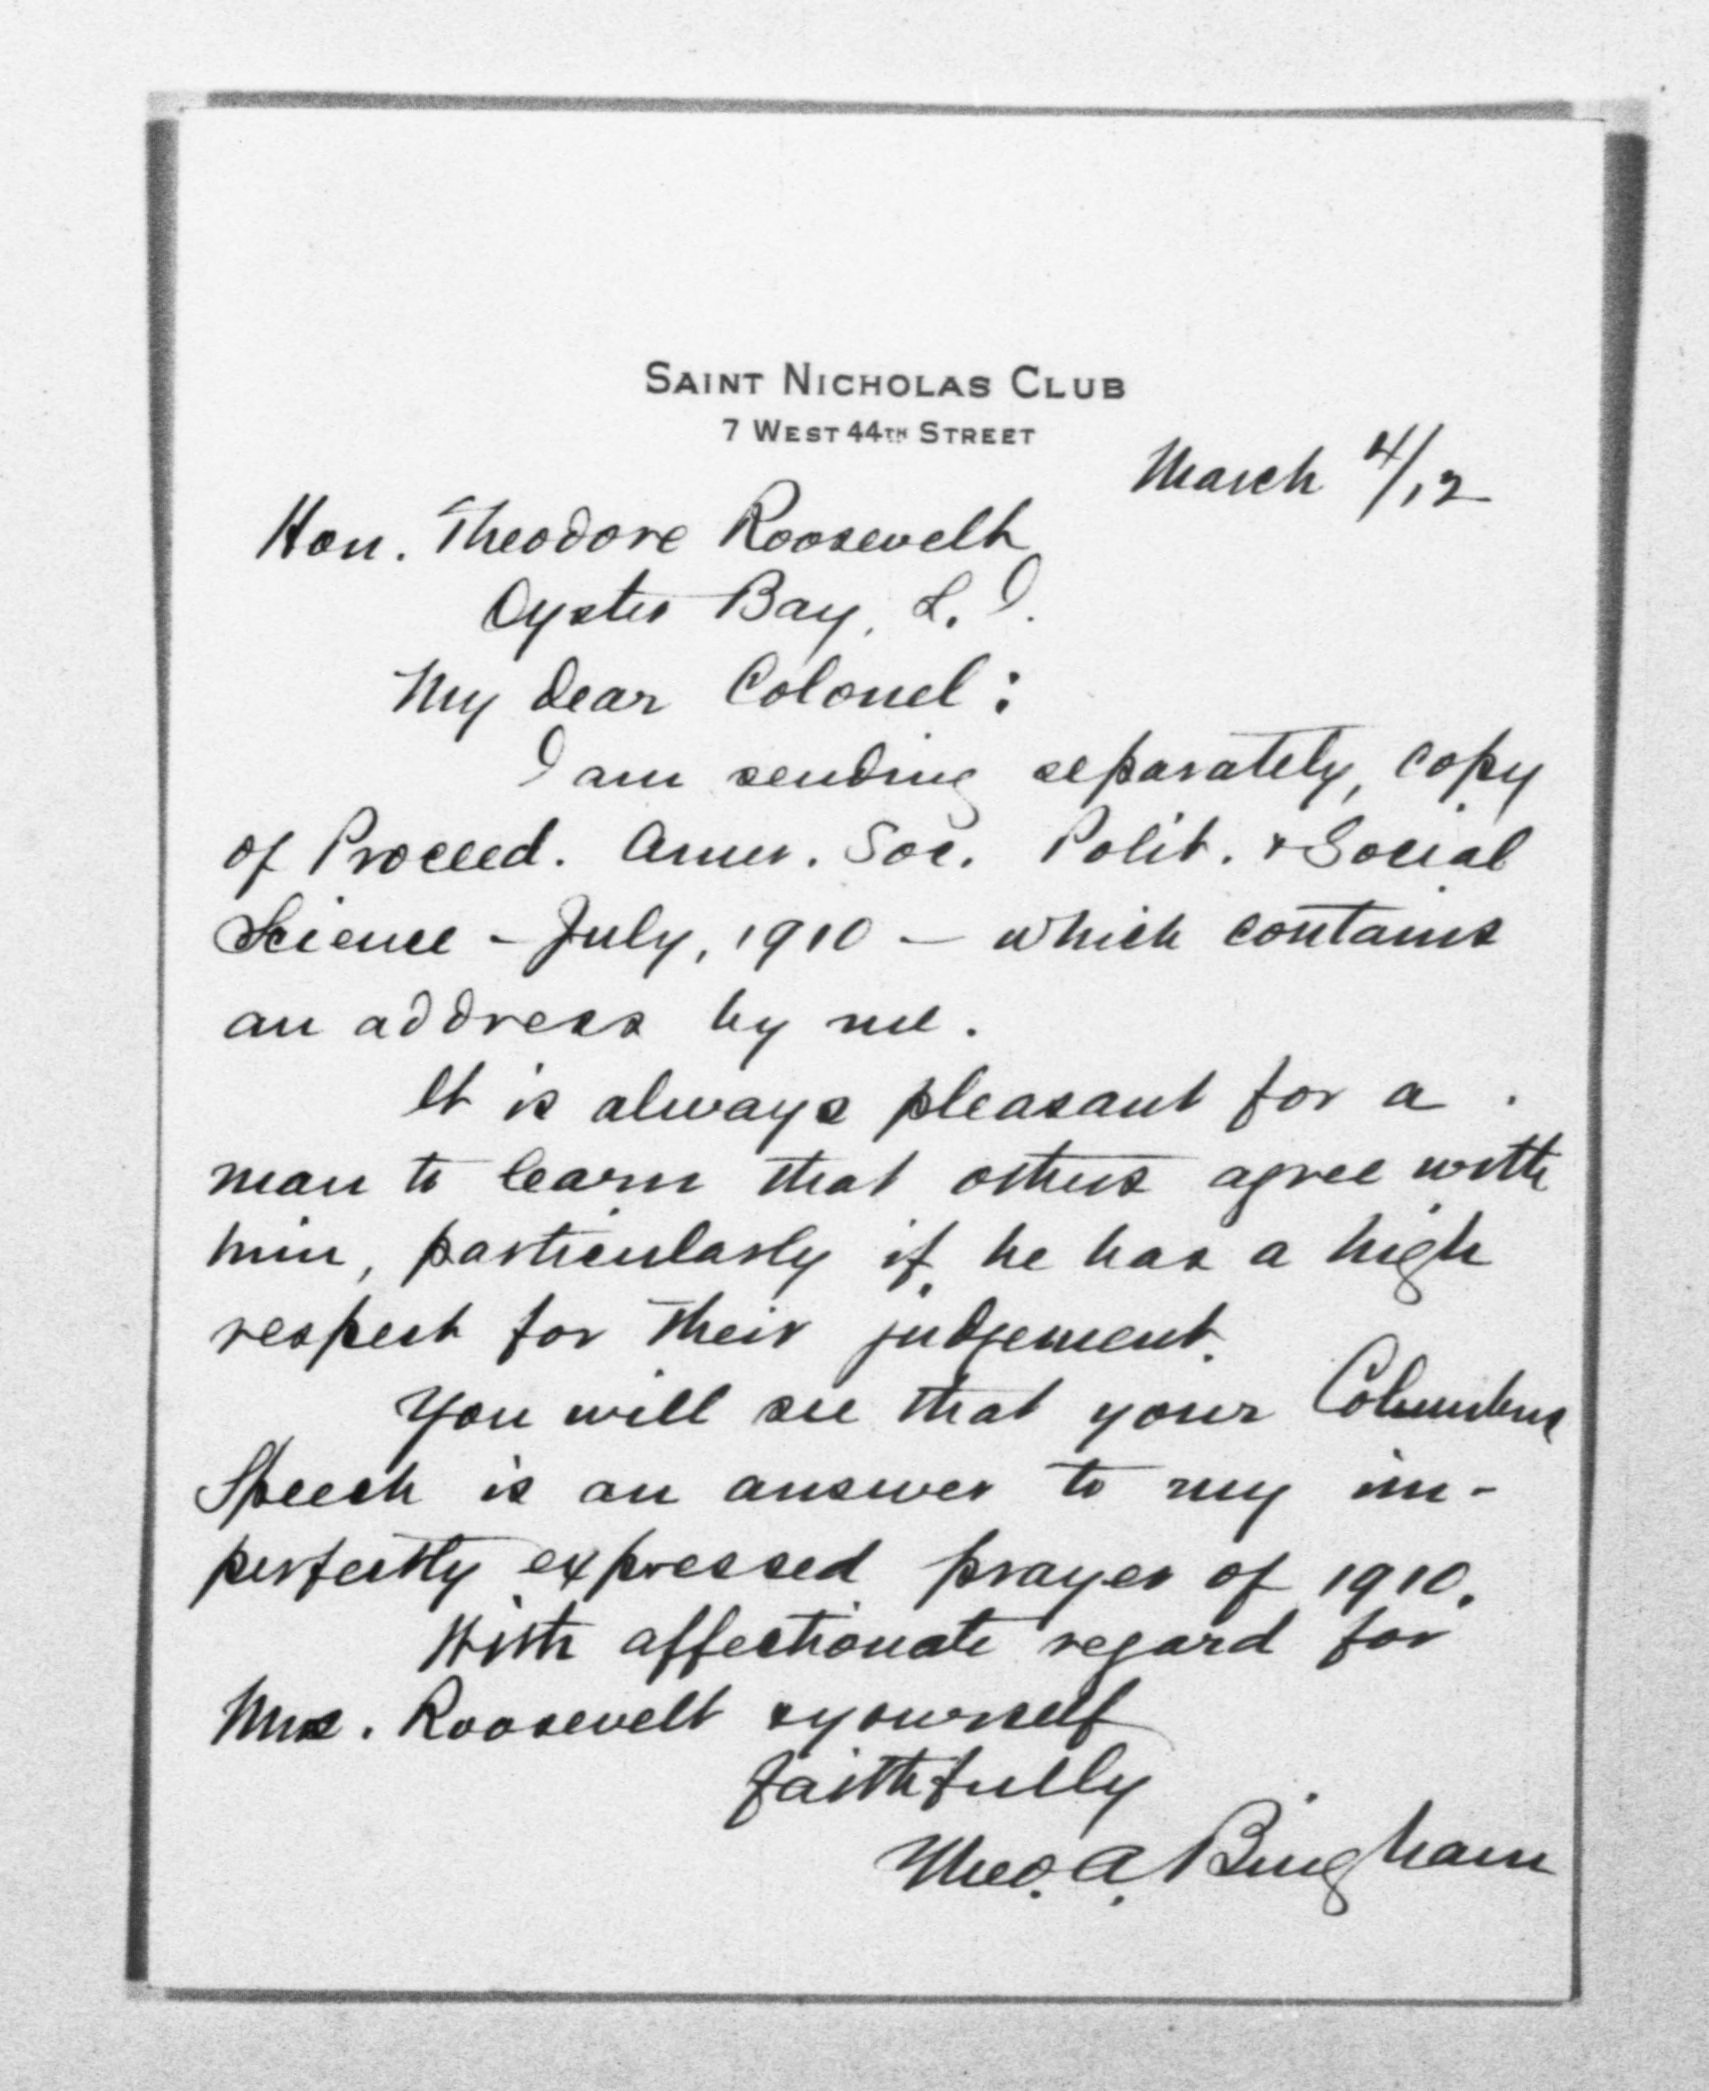 SAINT NICHOLAS CLUB
7 WEST 44TH STREET
March 4/12
Hon. Theodore Roosevelt
Oyster Bay, L. I.
My dear Colonel:
I am sending separately, copy
of Proceed. Amer. Soc. Polit. & Social
Science - July, 1910 - which contains
an address by me.
It is always pleasant for a
man to learn that others agree with
him, particularly if he has a high
respect for their judgement.
You will see that your Columbus
Speech is an answer to my im-
perfectly expressed prayer of 1910.
With affectionate regard for
Mrs. Roosevelt & yourself
faithfully
Theo. A. Bingham